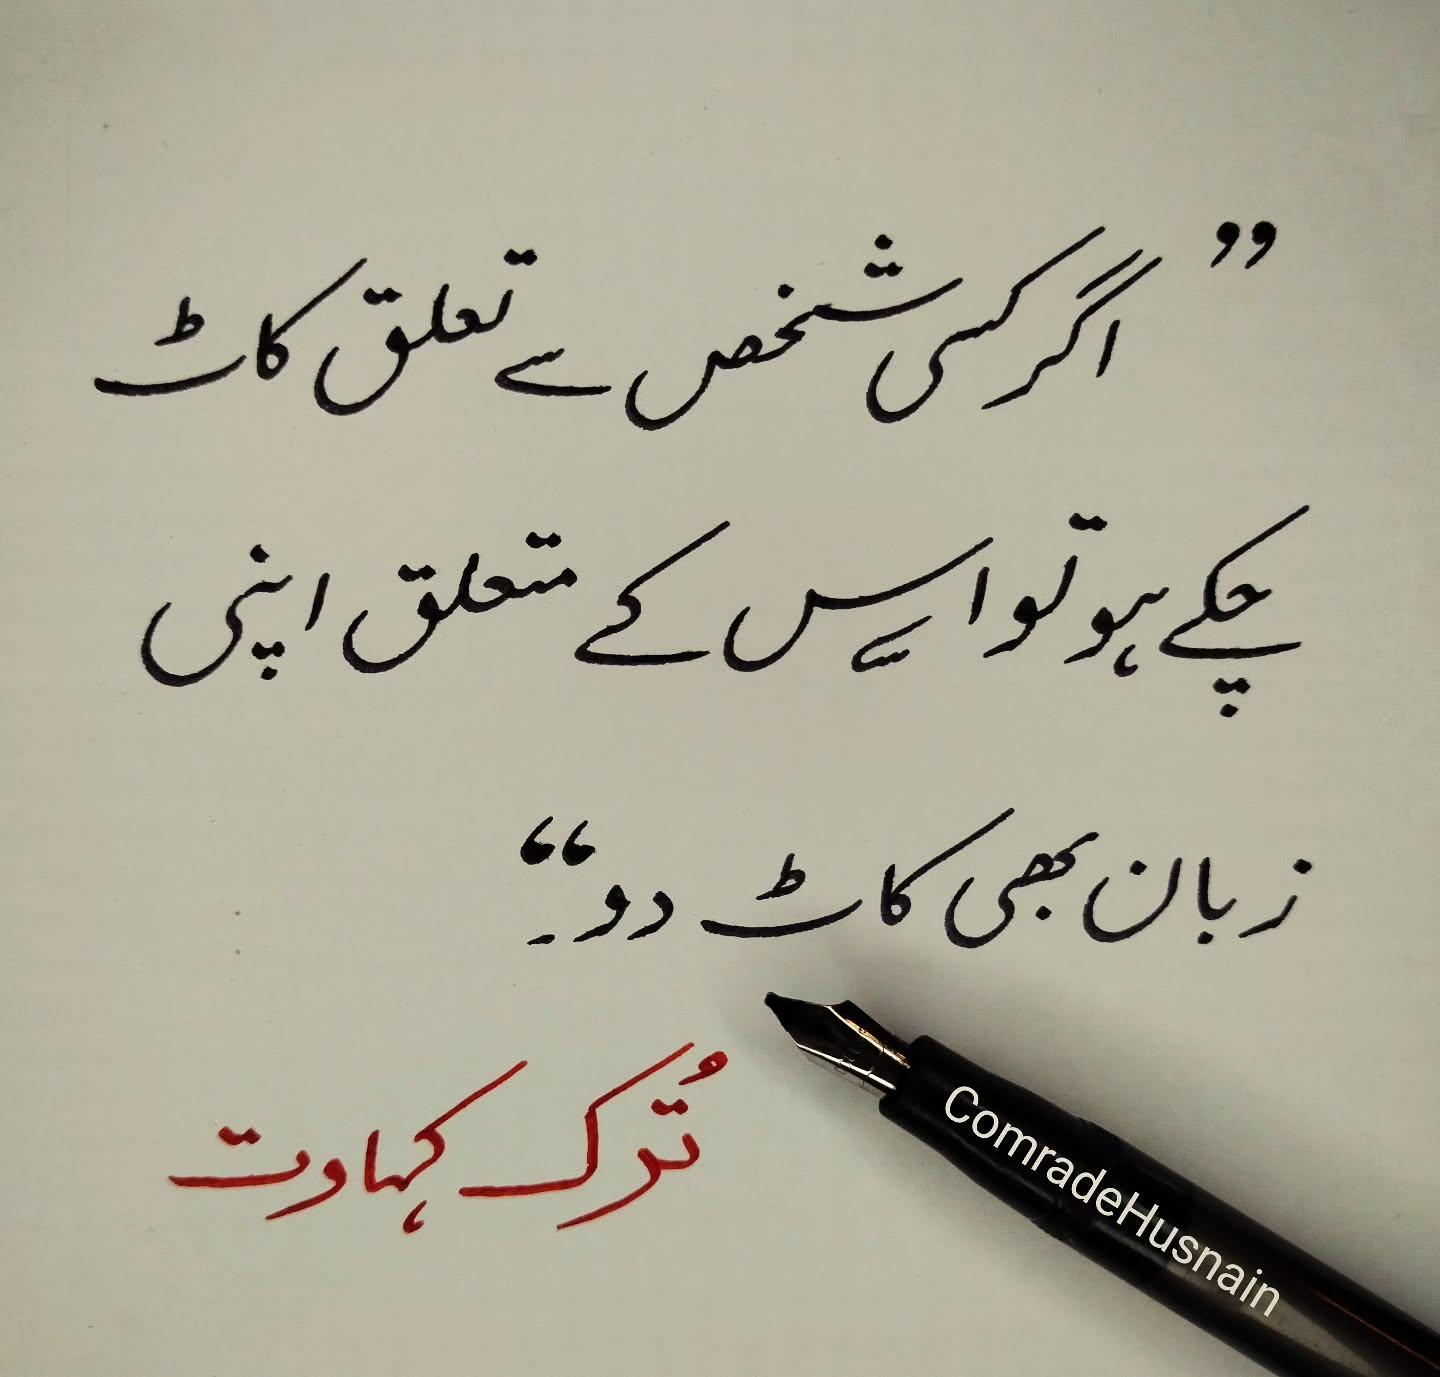 ”اگر کسی شخص سے تعلق کاٹ
چکے ہو تو اِس کے متعلق اپنی
زبان بھی کاٹ دو“۔
تُرک کہاوت
ComradeHusnain